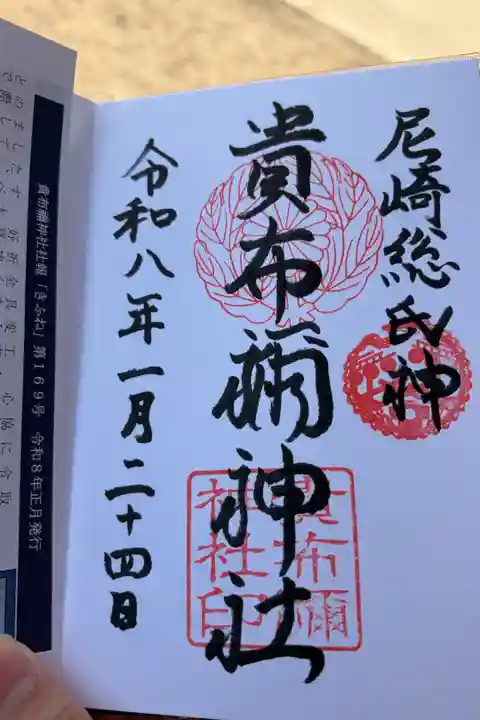 尼崎総氏神
貴布禰神社
令和八年一月二十四日
貴布禰神社印
貴布禰神社社報「きふね」第169号 令和8年正月発行